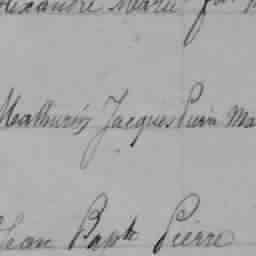 Alexandre Marie
Mathurin Jacques Pierre Ma
Jean Bapte Pierre